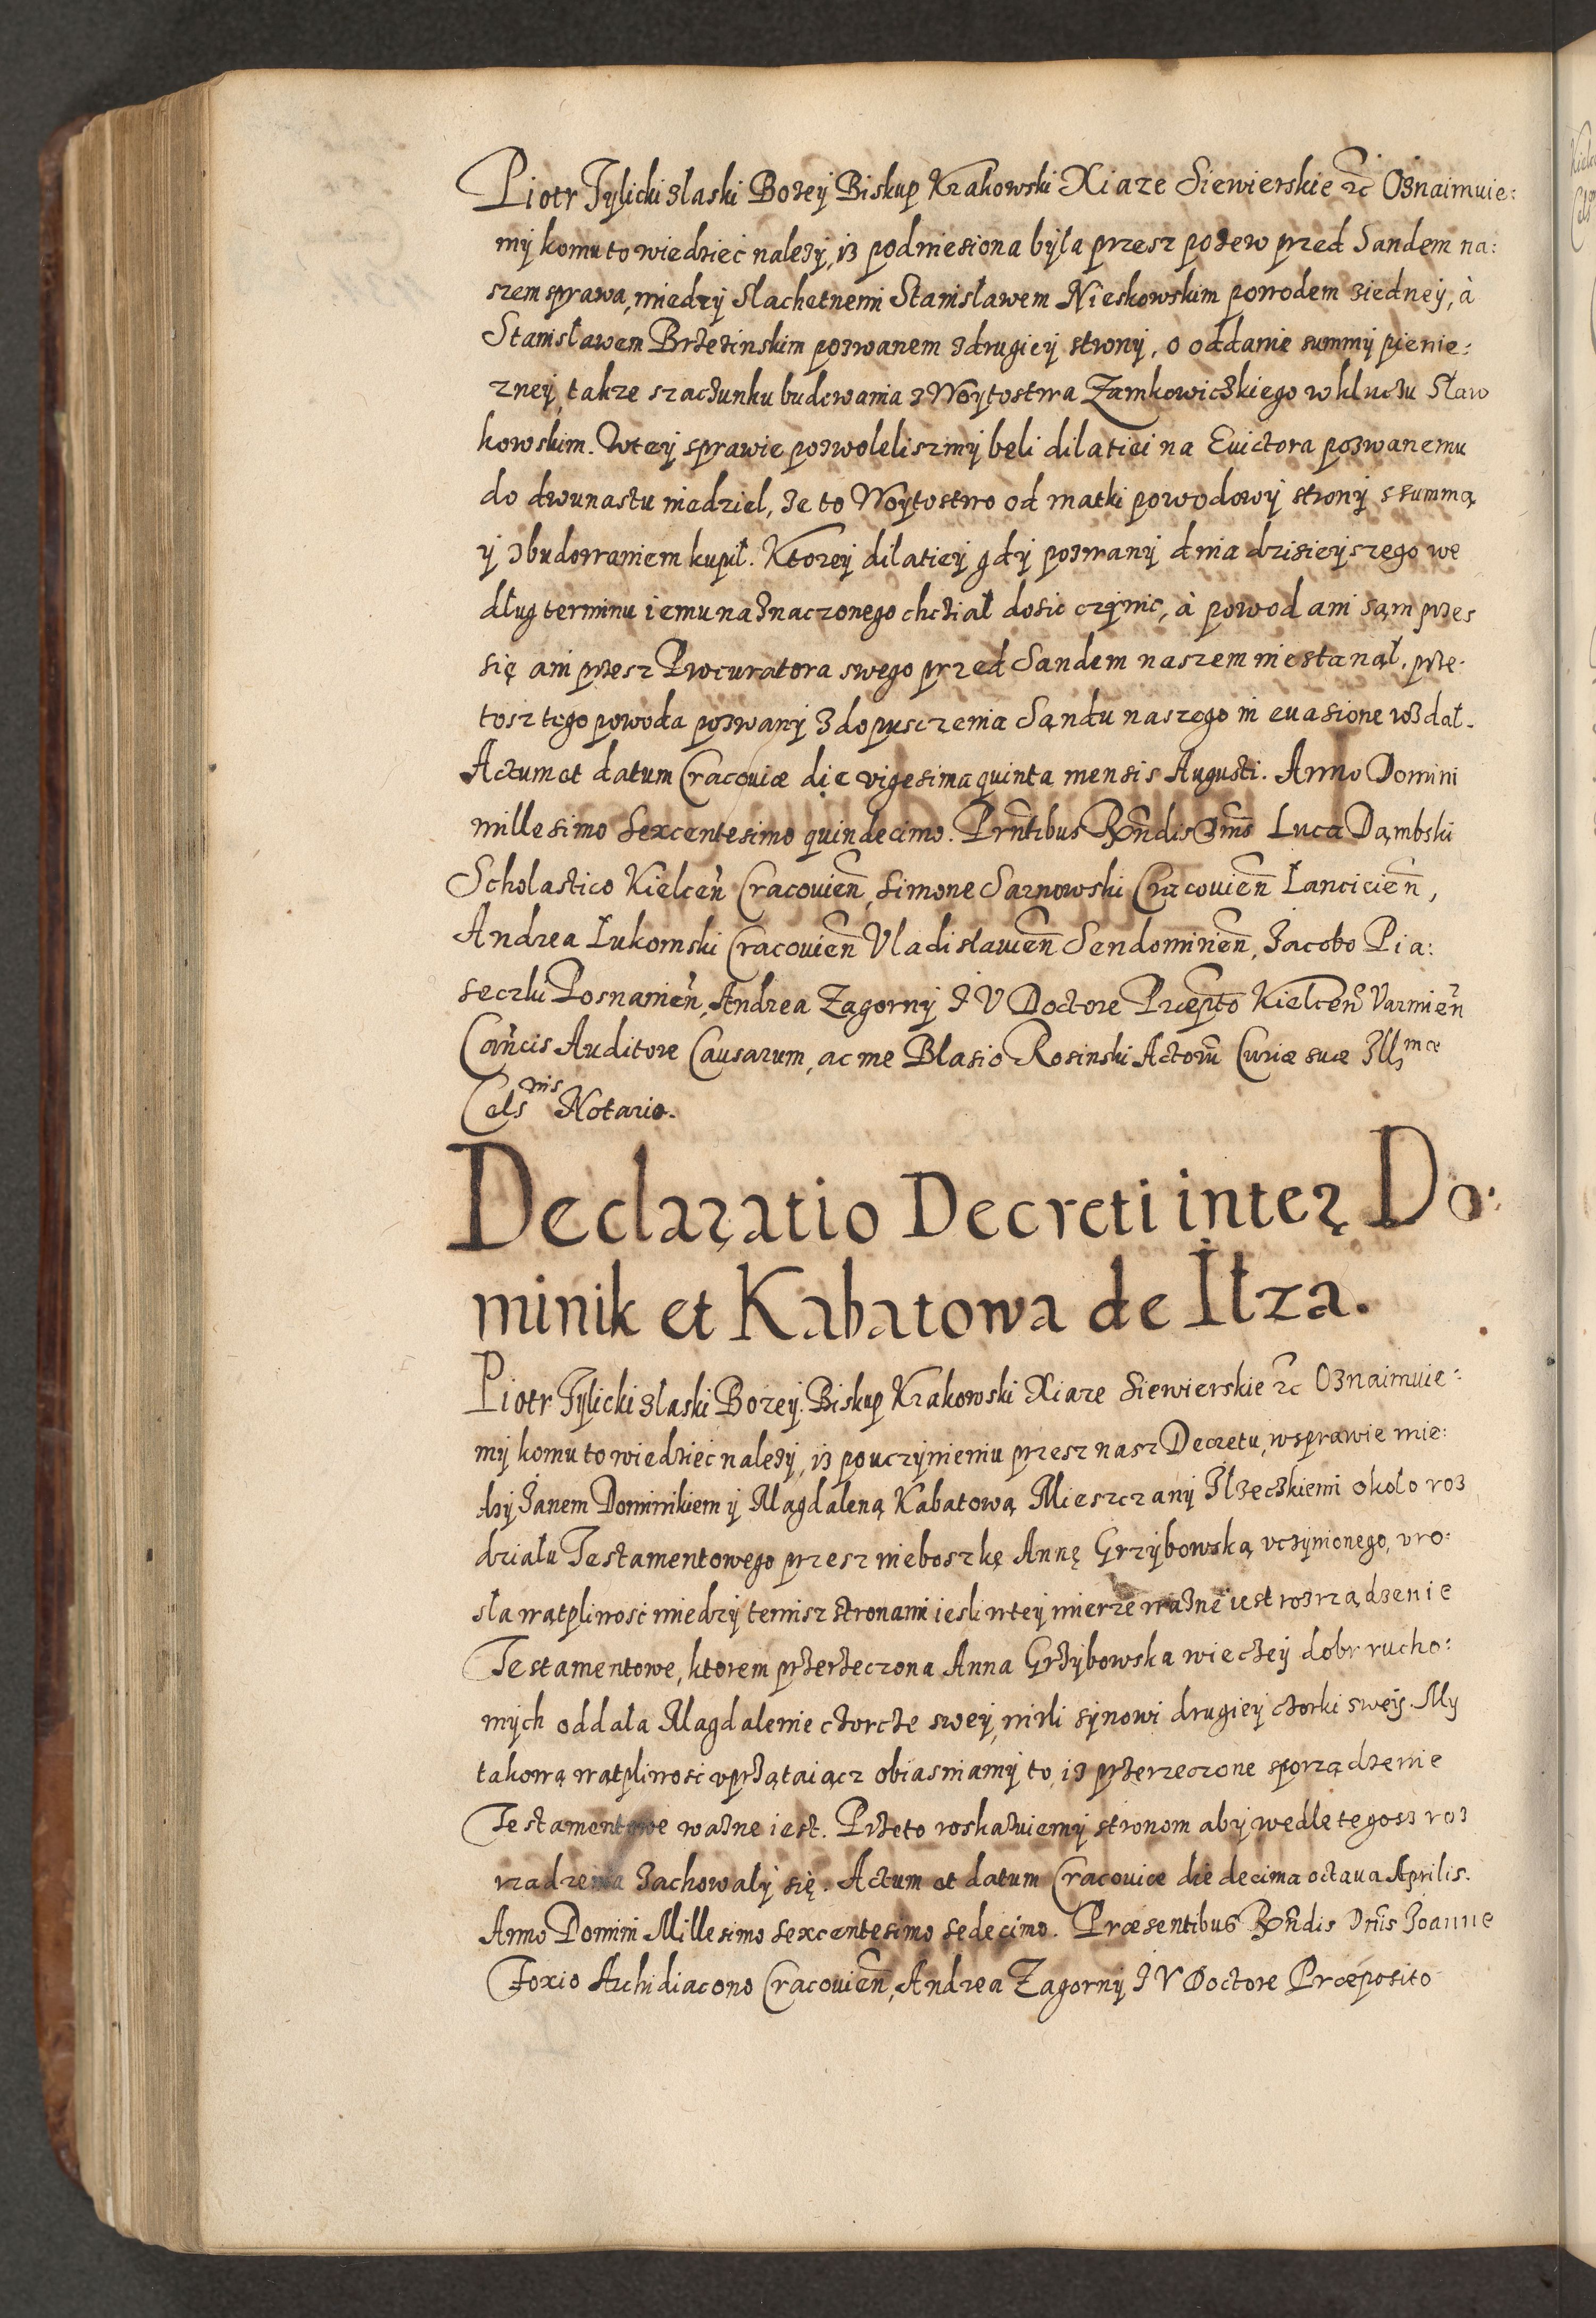 Piotr Tylicki z laski Bozey Biskup Krakowski Xiaze Siewierskie &c Oznaimuie:
my komu to wiedziec nalezy, iz podniesiona była przesz pozew przed Sandem na:
szem sprawa, miedzy Slachetnemi Stanisławem Nieskowskim powodem z iedney, à
Stanisławem Brzezinskim pozwanem z drugiey strony, o oddanie summy pienie:
zney, takze szacunku budowania z Woytostwa Zamkowiczkiego w kluczu Sław
kowskim. W tey sprawie pozwoleliszmy beli dilatiei na Euictora pozwanemu
do dwunastu niedziel, ze to Woytostwo od matki powodowy strony s summą
y z budowaniem kupił. Ktorey dilatiey gdy pozwany dnia dzisieyszego we
dług terminu iemu naznaczonego chciał dosic czynic, à powod ani sąm przes
się ani przesz Procuratora swego przed Sandem naszem nie stanął, prze-
tosz tego powoda pozwany z dopusczenia Sąndu naszego in euasione wzdał.
Actum et datum Cracouiæ die vigesima quinta mensis Augusti. Anno Domini
millesimo Sexcentesimo quindecimo. Prn̄tibus Rn̄dis Dn̄is Luca Dąmbski
Scholastico Kielcen̄ Cracouien̄, Simone Sarnowski Cracouien̄ Łancicien̄,
Andrea Łukomski Cracouien̄ Vladislauien̄ Sendomirien̄, Jacobo Pia:
seczki Posnanien̄, Andrea Zagorny I V Doctore Præpto Kielcen̄ Varmien̄
Can̄cis Auditore Causarum, ac me Blasio Rosinski Actorū Curiæ suæ Illmæ
Celsnis Notario.
Declaratio Decreti inter Do:
minik et Kabatowa de Iłza.
Piotr Tylicki z laski Bozey. Biskup Krakowski Xiaze Siewierskie &c Oznaimuie:
my komu to wiedziec nalezy, iz po uczynieniu przesz nasz Decretu, w sprawie mie:
dzy Janem Dominikiem y Magdaleną Kabatową Mieszczany Ilzeczkiemi około roz
działu Testamentowego przesz nieboszkę Annę Grzybowską vczynionego, vro:
sła wątpliwosc miedzy temisz stronami iesli w tey mierze wazne iest rozrządzenie
Testamentowe, ktorem przerzeczona Anna Grzybowska wieczey dobr rucho:
mych oddała Magdalenie czorcze swey, nizli synowi drugiey czorki swey. My
takową wątpliwosc vprzątaiącz obiasniamy to, iz przerzeczone sporządzenie
Testamentowe wazne iest. Przeto roskazuiemy stronom aby wedle tegosz roz
rzadzenia zachowaly się. Actum et datum Cracouiæ die decima octaua Aprilis.
Anno Domini Millesimo Sexcentesimo sedecimo. Præsentibus Rn̄dis Dn̄is Joanne
Foxio Archidiacono Cracouien̄, Andrea Zagorny I V Doctore Præposito